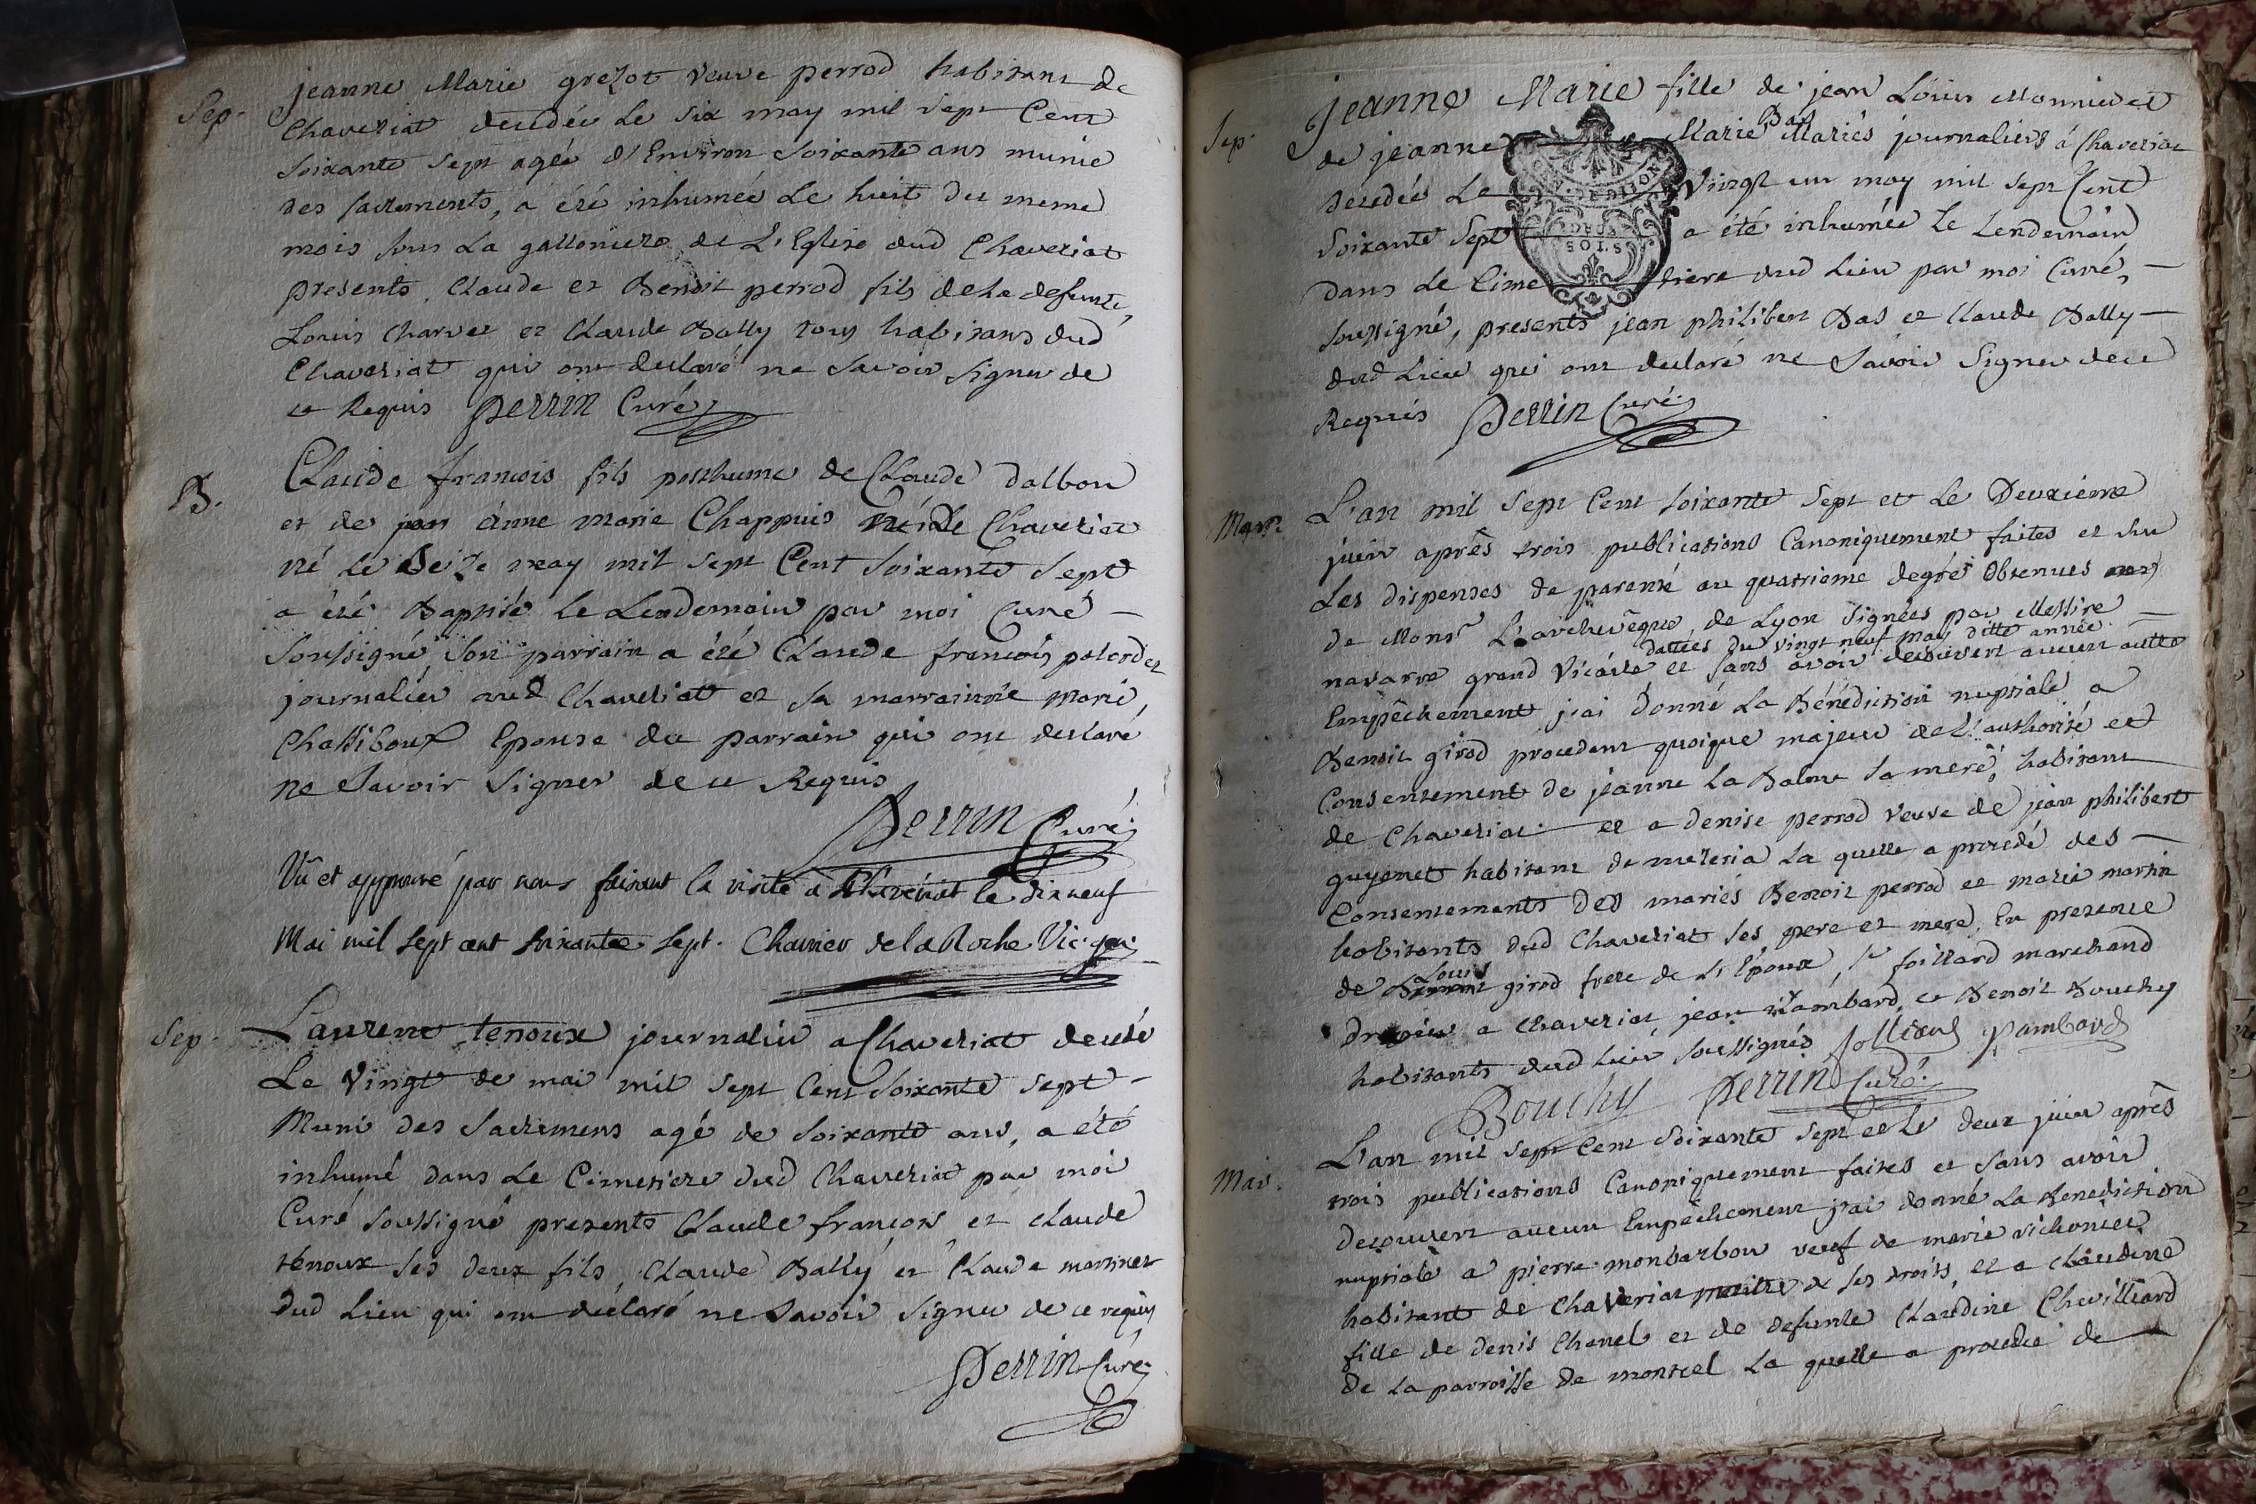 Sep. jeanne Marie grezot veuve perrod habitant de
Chaveriat decedée Le six may mil sept Cent
soixante sept agée d'Environ soixante ans munie
des sacrements, a été inhumée Le huit du meme
mois sous La gallonniere de L'Eglise dud Chaveriat
presents, Claude et Benoit perrod fils de La defunte,
Louis Charvet et Claude Bally tous habitans dud
Chaveriat qui ont declaré ne savoir signer de
ce Requis perrin Curé
B. Claude francois fils posthume de Claude dalbon
et de anne marie Chappuis de Chaveriat
né Le seize may mil sept Cent soixante sept
a été Baptisé Le Lendemain par moi Curé
soussigné, son parrain a été Claude francois
journalier aud Chaveriat et sa marrainne marie
Chassiboux Epouse du parrain qui ont declaré
ne savoir signer de ce Requis
Perrin Curé
Vû et approuvé par nous faisant la visite a Chaveriat le dixneuf
Mai mil sept cent soixante sept. Charrier de la Roche Vic. gen.
Sep. Laurent tenoux journalier a Chaveriat decedé
Le vingt de mai mil sept Cent soixante sept
Muni des sacremens agé de soixante ans, a été
inhumé dans Le Cimetiere dud Chaveriat par moi
Curé soussigné presents Claude françois et claude
tenoux ses deux fils, Claude Bally et Claude martinet
dud Lieu qui ont déclaré ne savoir signer de ce requis
Perrin Curé
Sep. jeanne Marie fille de jean Louis Monnier et
Bas
de jeanne Marie Mariés journaliers á Chaveriat
decedée Le Vingt un may mil sept Cent
soixante sept a été inhumée Le Lendemain
dans Le Cimetiere dud Lieu par moi Curé,
soussigné, presents jean philibert Bas et Claude Bally
dud Lieu qui ont declaré ne savoir signer de ce
Requis Perrin Curé
Mar. L'an mil sept Cent soixante sept et Le Deuxième
juin après trois publications Canoniquement faites et vu
Les dispenses de parenté au quatrieme degré obtenues
de Monsr L'archevêque de Lyon signées par Messire
dattées du vingt neuf may ditte année
navarre grand Vicaire et sans avoir decouvert aucun autre
Empêchement j'ai donné La Bénédiction nuptiale a
Benoit girod procedant quoique majeur de L'authorité et
Consentement de jeanne La Balme sa mere, habitant
de Chaveriat et a denise perrod veuve de jean philibert
guyonet habitant de mezeria La quelle a procedé des
Consentements des mariés Benoit perrod et marie martin
habitants dud Chaveriat ses pere et mere, En presence
Louis
de girod frere de L'Epoux, sr foillard marchand
drapier a Chaveriat, jean Rambard, et Benoit Bouchy
habitants dud Lieu soussignés follieard Rambard
Bouchy Perrin Curé
Mar. L'an mil sept Cent soixante sept et Le deux juin après
trois publications Canoniquement faites et sans avoir
decouvert aucun Empêchement j'ai donné La Benediction
nuptiale a pierre monbarbon veuf de marie vichonier
habitant de Chaveriat maitre de ses droits, et a claudine
fille de denis Chanel et de defunte Claudine Chevilliard
de La parroisse de montcel La quelle a procedé de